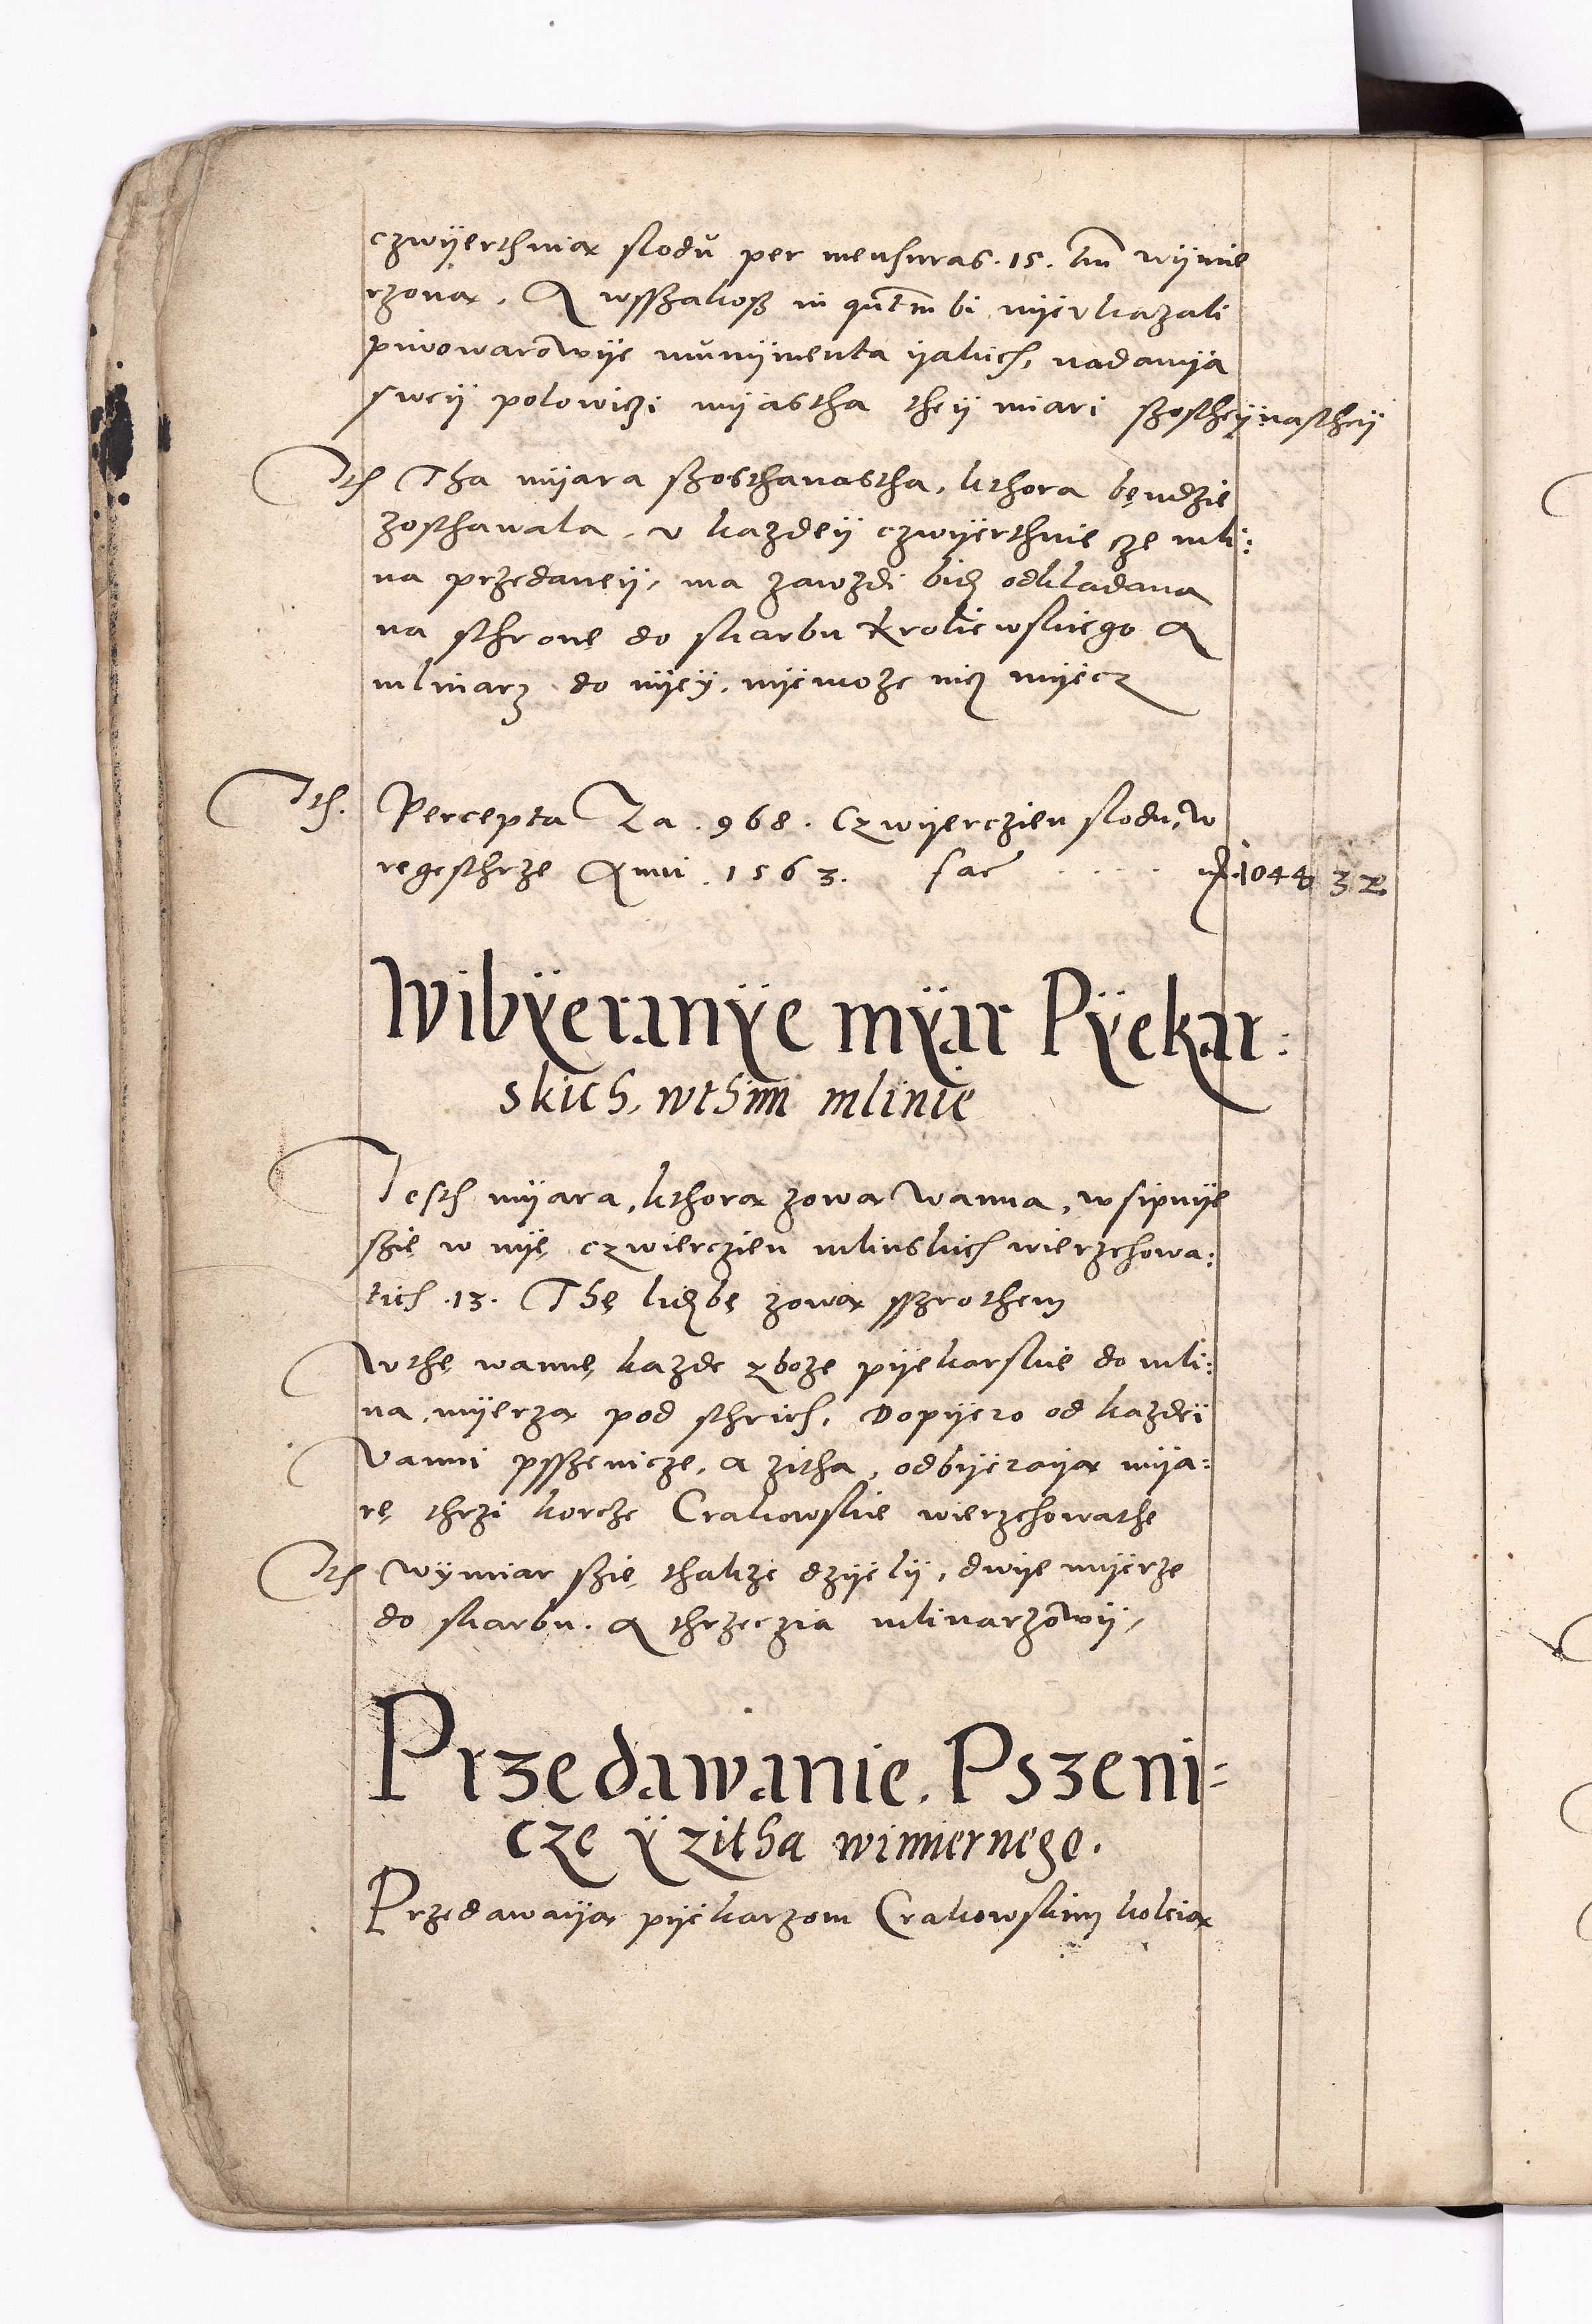 czwÿerthnią slodŭ per mensuras .15. tm̄ wÿmie
rzoną, A wsszakosz in qūtm̄ bi nÿe vkazali
piwowarowÿe mŭnÿmenta ÿakich, nadanÿa
sweÿ polowiczi mÿastha theÿ miari szostheÿ nastheÿ
Ith Tha mÿara szosthanastha, kthora bęndzie
zosthawala, v kazdeÿ czwÿerthnie ze mli:
na przedaneÿ, ma zawzdi bidz odkladana
na sthronę do skarbu Kroliewskiego A
mlinarz do nÿeÿ, nÿemoze nicz mÿecz
Ith. Percepta Za .968. Czwÿerczien slodu, w
regesthrze Anni .1563. fac . . . . m 1044 32
Wibÿeranÿe mÿar Pÿekar:
skich, wthim mlinie
Iesth mÿara, kthorą zową Wanna, wsipuÿe
szię w nÿę czwierczien mlinskich wierzchowa:
tich .13. Thę liczbę zową sszrothem
W thę wannę, kazde zboze pÿekarskie do mli:
na, mÿerzą pod sthrich, Dopÿero od kazdeÿ
Wanni psszenicze, a zitha, odbÿeraÿą mÿa:
rę, thrzi korcze Crakowskie wierzchowathe
Ith Wÿmiar szię thakze dzÿelÿ, dwÿe mÿerze
do skarbu. A thrzeczia mlinarzowÿ,
Przedawanie. Pszeni=
cze ÿ zitha wimiernego.
Przedawaÿą pÿekarzom Crakowskim koleią